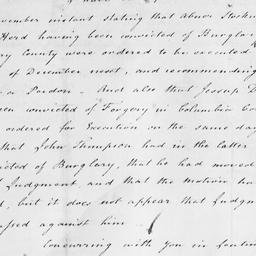 vember instant stating that Abner
Herd having been convicted of Burglar
ry County were ordered to be executed
of December next, and recommending
a Pardon - And also that Joseph D
een convicted of Forgery in Columbia Co
ordered for Execution on the same day
that John Thompson had in the Latter
icted of Burglary, that he had moved
Judgment, and that the Motion ha
d, but it does not appear that Judgm
assed against him
Concurring with You in